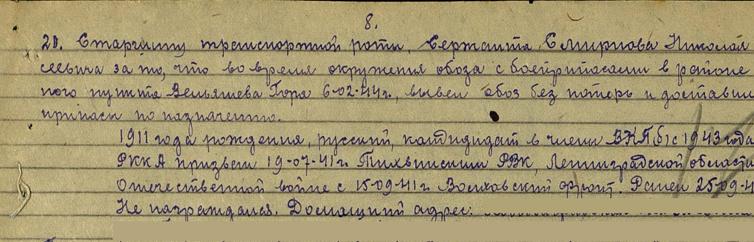 8.
20. Старшину транспортной роты, Сержанта Смирнова Николая
сеевича за то, что во время окружения обоза с боеприпасами в районе
ного пункта Вельяшева Гора 6-02-44г., вывел обоз без потерь и доставил
припасы по назначению.
1911 года рождения, русский, кандидат в члены ВКП(б) с 1943 года
РККА призван 19-07-41г. Тихвинским РВК, Ленинградской области
Отечественной войне с 15-09-41г. Волховский фронт. Ранен 25-09-4
Не награждался. Домашний адрес: